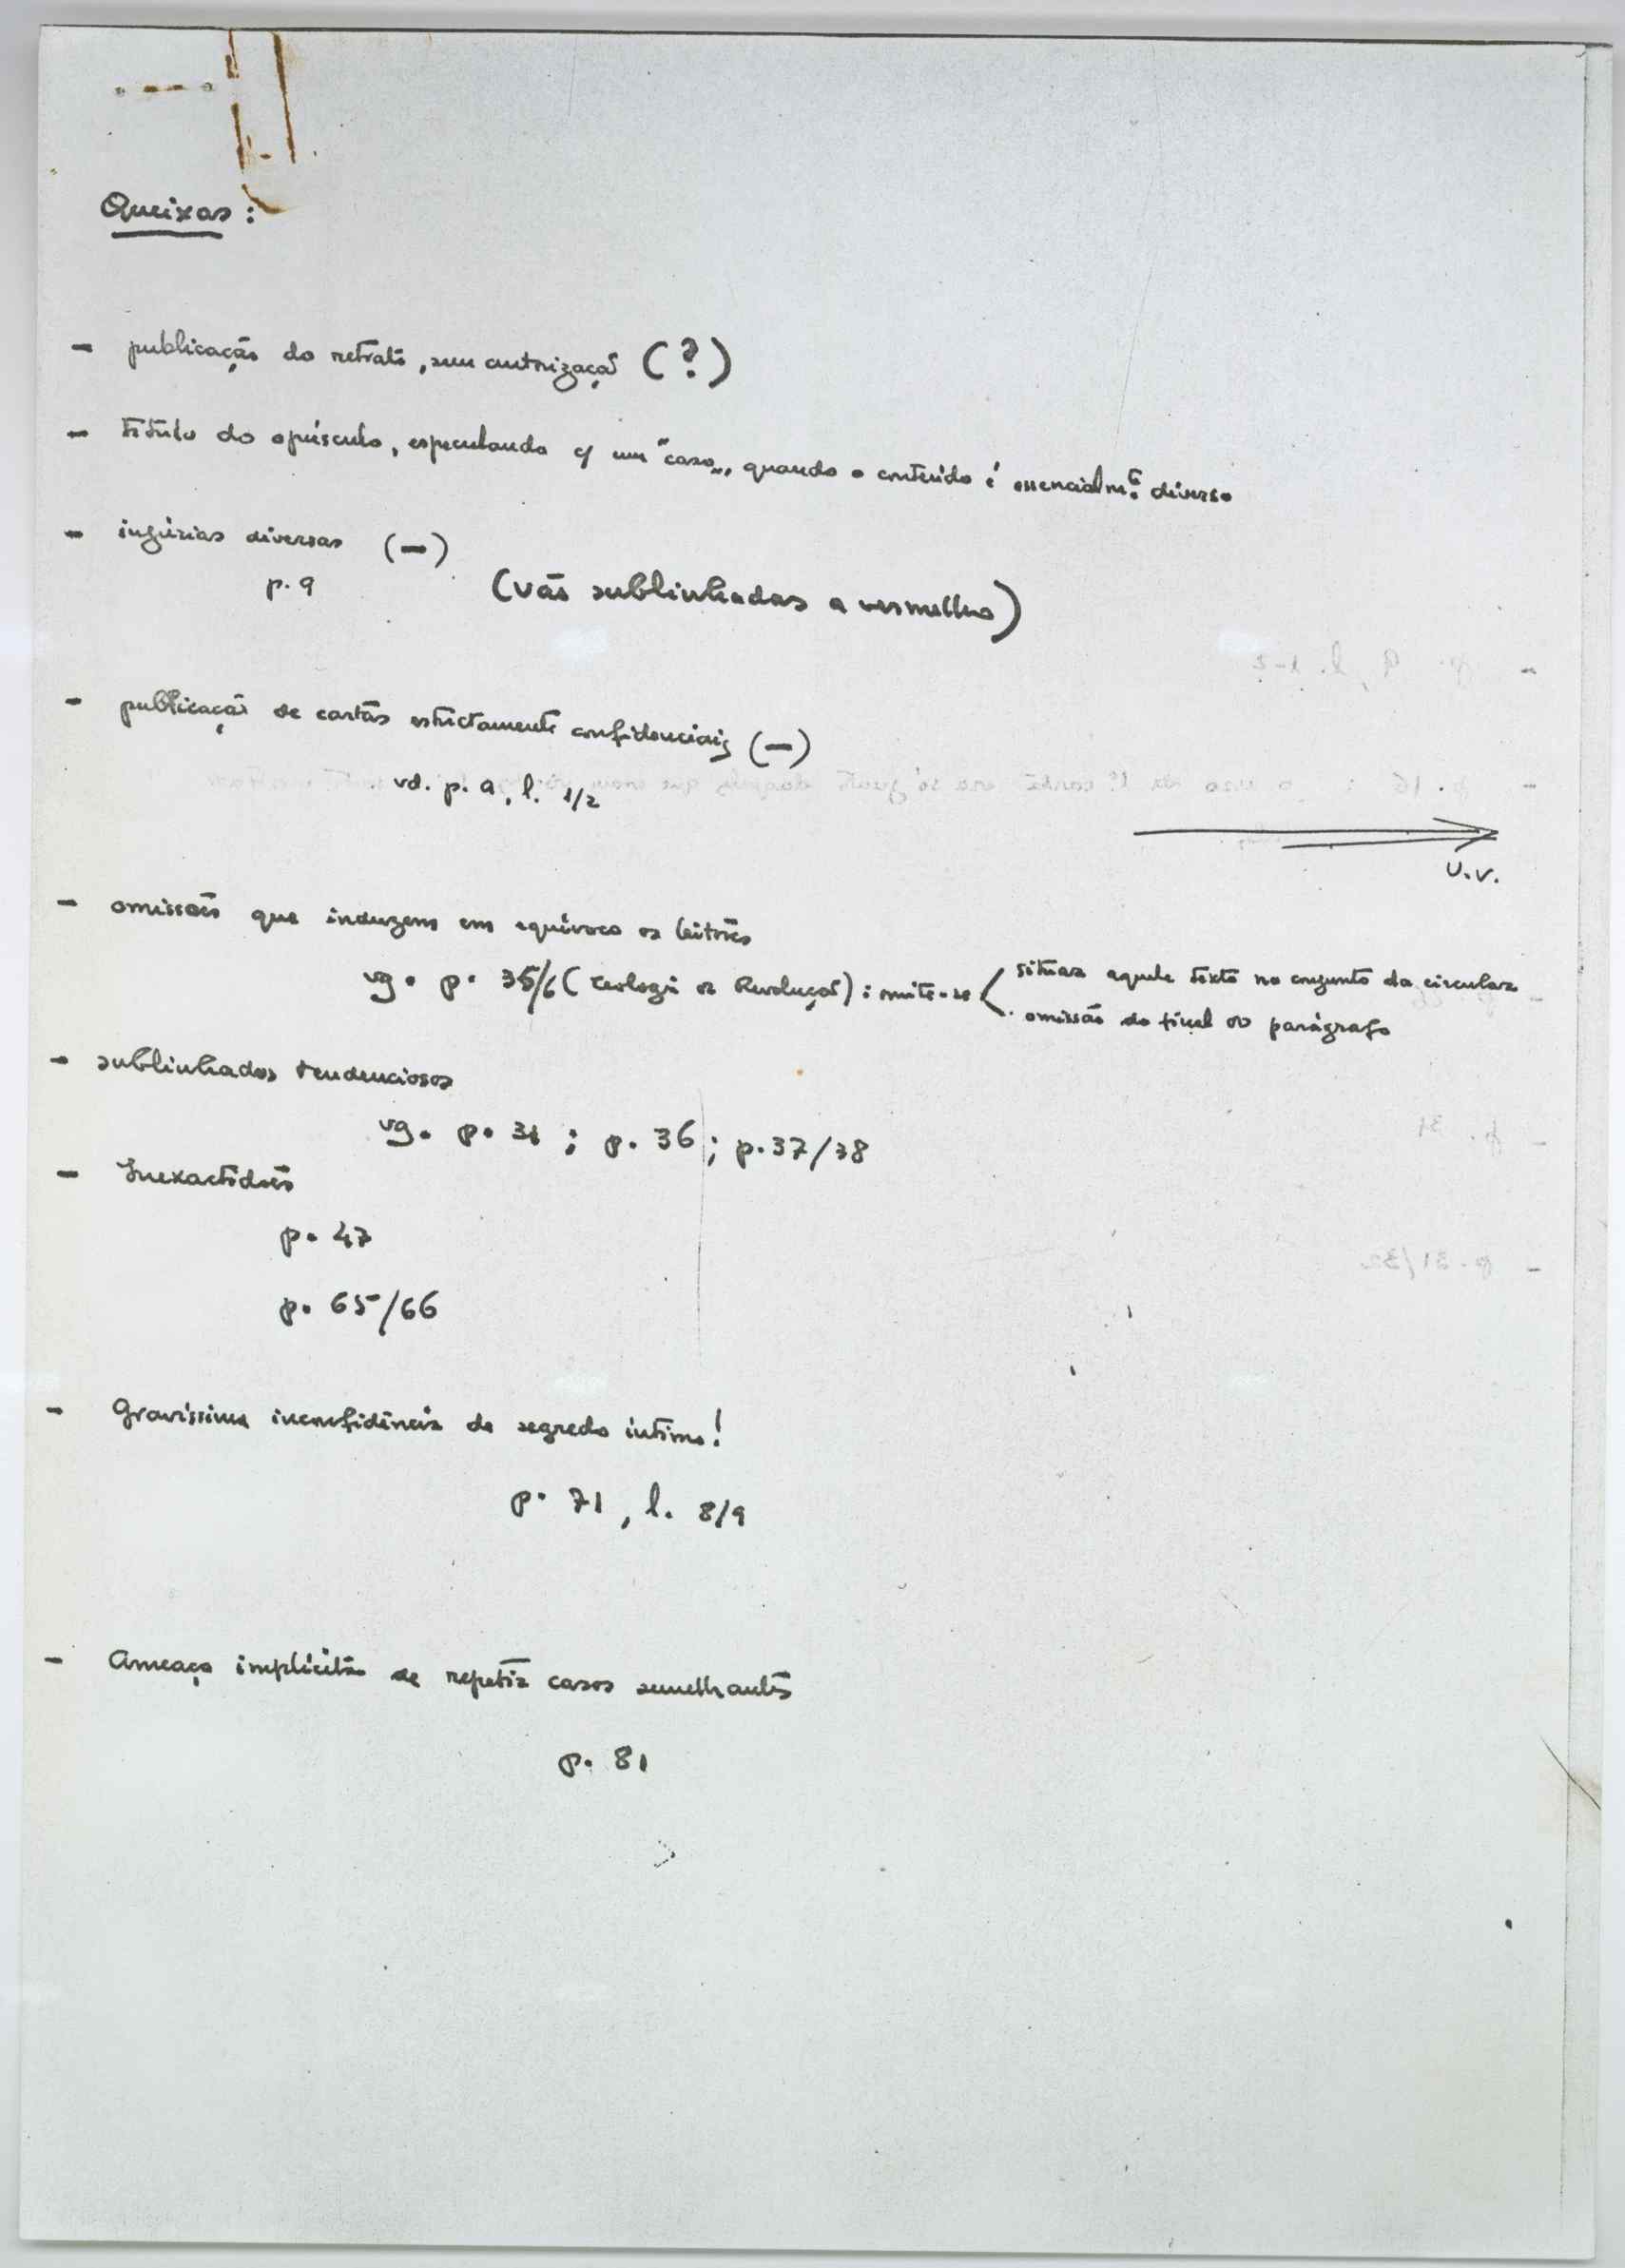 Queixas :
- publicação do retrato, sem autorização (?)
- título do opúsculo, especulando c/ um "caso", quando o conteúdo é essencialmte diverso
- injúrias diversas (—)
p. 9
(vão sublinhadas a vermelho)
- publicação de cartas estrictamente confidenciais (—)
vd. p. 9, l. 1/2
U.V.
- omissões que induzem em equívoco os leitores
vg. p. 35/6 ( Teologia da Revolução) : omite-se
situar aquele texto no conjunto da circular
omissão do final do parágrafo
- sublinhados tendenciosos
vg. p. 31 ; p. 36 ; p. 37/38
- Inexactidões
p. 47
p. 65/66
- Gravíssima inconfidência de segredo íntimo!
p. 71, l. 8/9
- Ameaça implícita de repetir casos semelhantes
p. 81